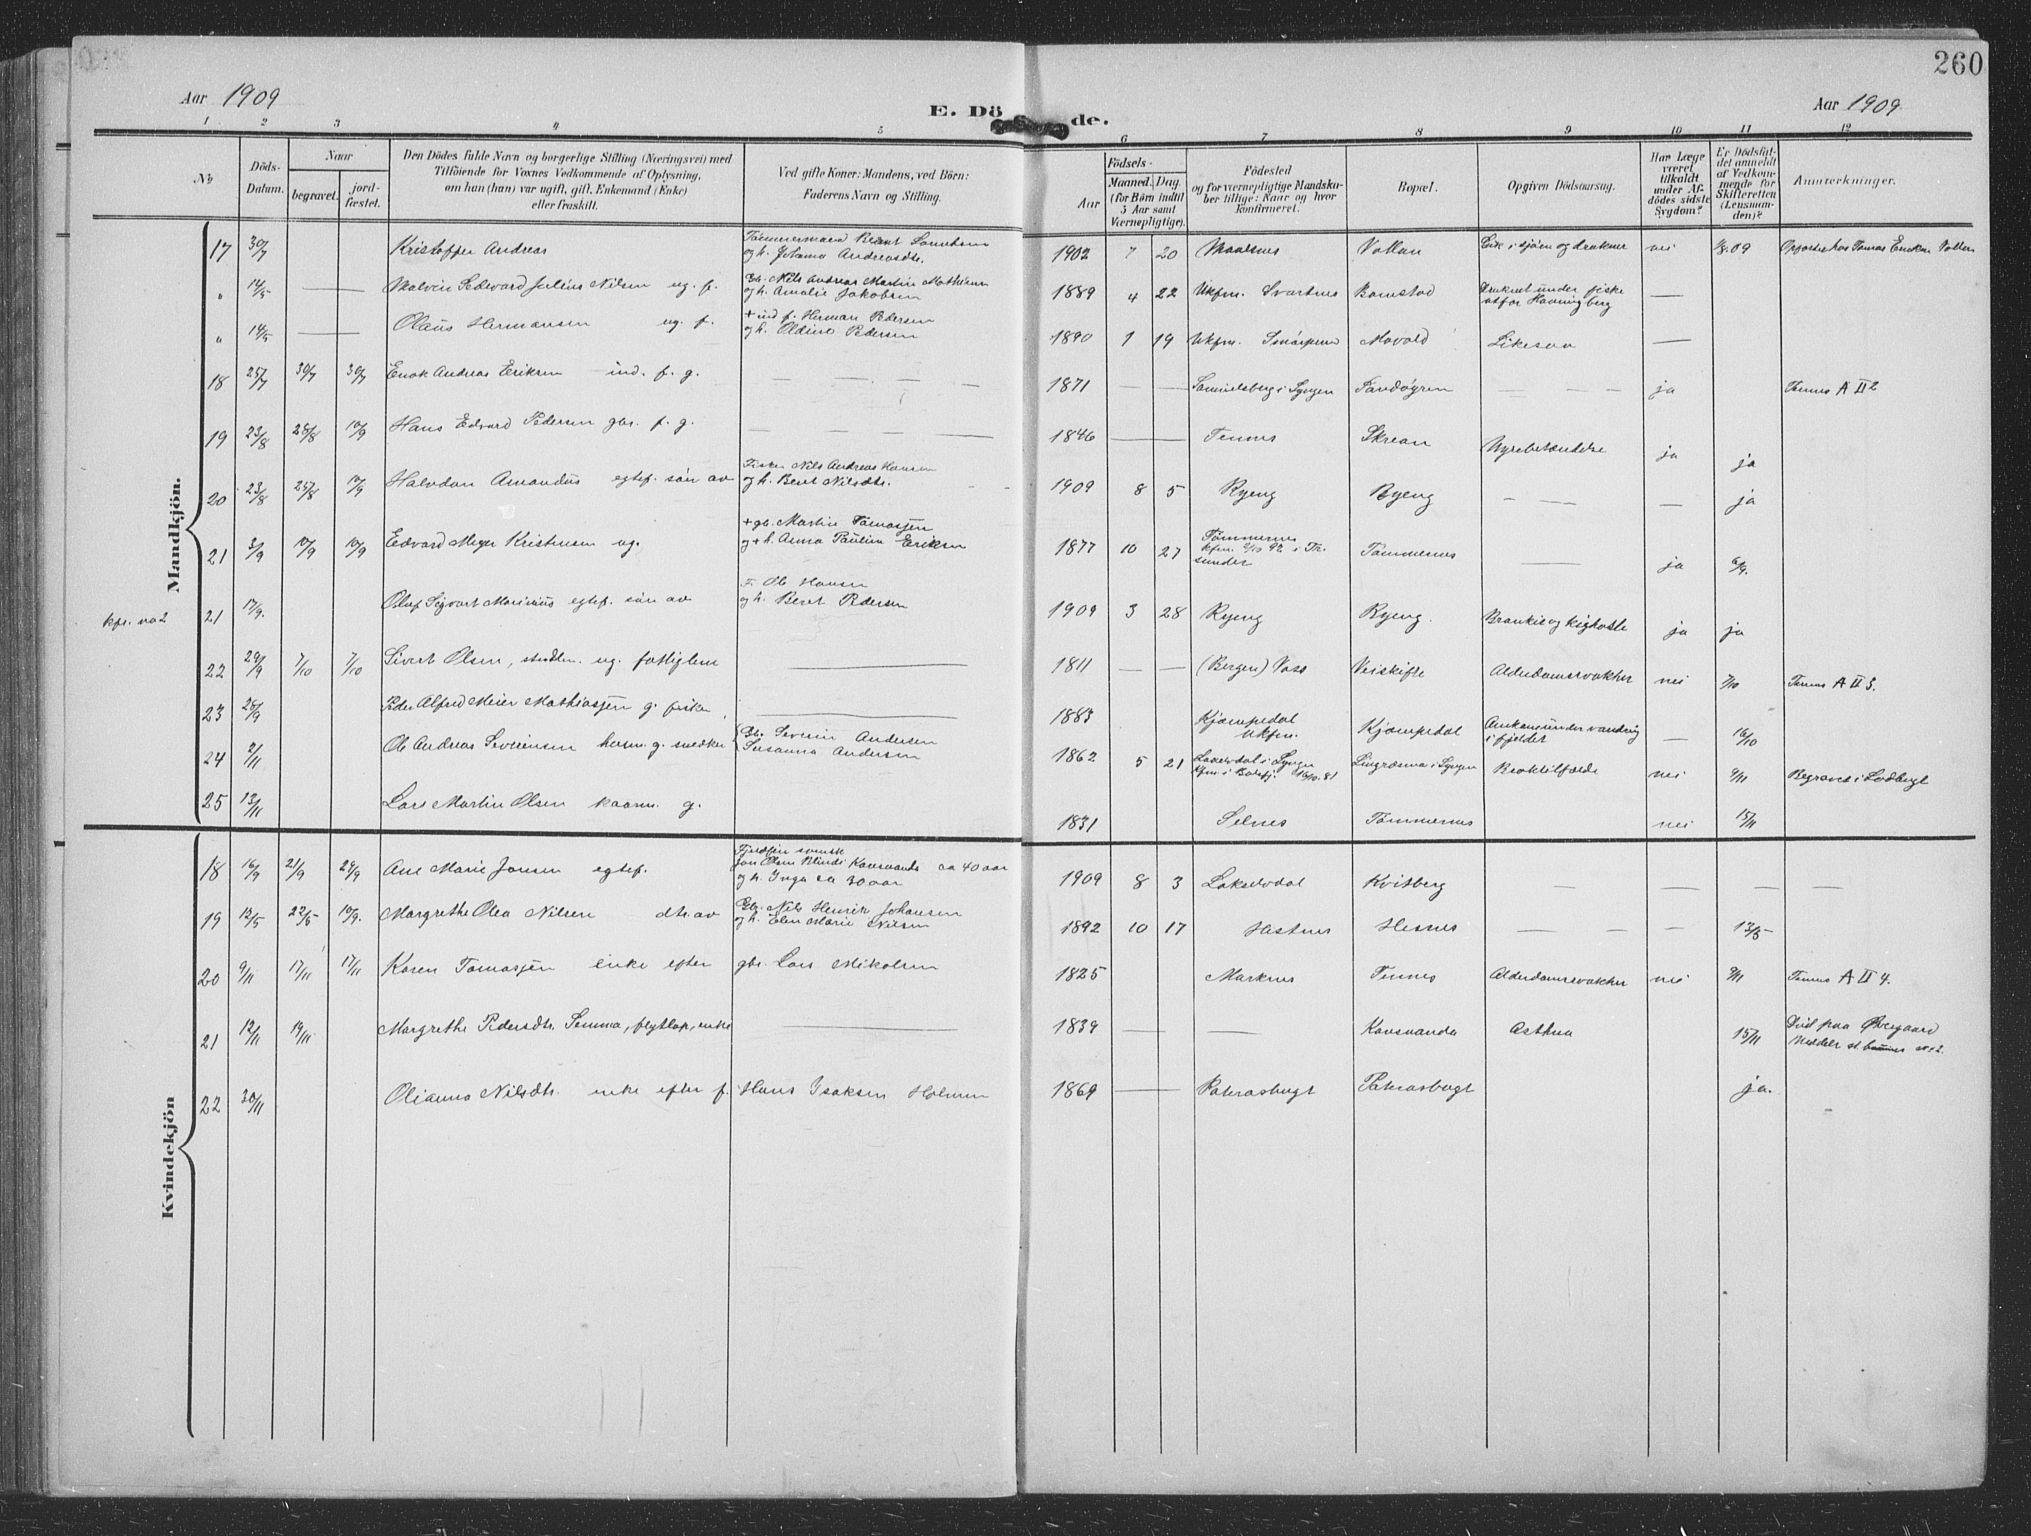 260
Aar 1909
E. Dö
de.
Aar 1909
1 2 3 4 5 6 7 8 9 10 11 12
No
Döds-
Datum.
Naar
begravet.
jord-
fæstet.
Den Dödes fulde Navn og borgerlige Stilling (Næringsvei) med
Tilföiende for Voxnes Vedkommende af Oplysning,
om han (hun) var ugift, gift, Enkemand (Enke)
eller fraskilt.
Ved gifte Koner: Mandens, ved Börn:
Faderens Navn og Stilling.
Födsels-
Aar
Maaned. Dag.
(for Börn indtil
5 Aar samt
Værnepligtige).
Födested
og for værnepligtige Mandska-
ber tillige: Naar og hvor
konfirmeret.
Bopæl.
Opgiven Dödsaarsag.
Har Læge
været
tilkaldt
under Af-
dödes sidste
Sygdom?
Er Dödsfal-
det anmeldt
af Vedkom-
mende for
Skifteretten
(Lensman-
den)?
Anmærkninger.
Mandkjön.
17 30/7 Kristoffer Andreas
og h. Johanna Andreasdtr.
1902 7 20 Maalsnes Vollan Gik i sjøen og druknet nei
" 14/5 — — Malvin Sedevard Julius Nilsen ug. f. Gb. Nils Andreas Martin Mathisen
og h. Amalie Jakobsen
1889 4 22 Ukfm. Svartnes Bomstad Druknet under fiske
utfor Havningberg —
" 14/5 — — Olaus Hermansen ug. f. + ind. f. Herman Pedersen
og h. Oldine Pedersen
1890 1 19 Movold Likesaa —
18 25/7 30/7 30/7 Enok Andreas Eriksen ind. f. g. — — — —
1871 — — Samuelsberg i Lyngen Sandøyren — — ja Tennes A II 2
19 23/8 28/8 10/9 Hans Edvard Pedersen gbr. f. g. — — —
1846 — Tennes Skrean Nyrebetændelse ja ja
20 23/8 28/8 10/9 Halvdan Amandus egtef. søn av Fisker Nils Andreas Hansen
og h. Beret Nilsdtr.
1909 8 5 Ryeng Ryeng — — — ja
21 3/9 10/9 10/9 Edvard Meyer Kristensen ug. + gb. Martin Tomassen
og + h. Anna Paulina Eriksen
1877 10 27 Tømmernes
Tømmernes ja 6/9.
kfr. no 2 21 17/9. Oluf Sigvart Marinius egtef. søn av F. Ole Hansen
og h. Beret Pedersen
1909 3 28 Ryeng Ryeng. Bronkit og kighoste ja ja
22 29/9 7/10 7/10 Sivert Olsen, ug. fattiglem —
1811 — — (Bergen) Voss Veiskifte Alderdomssvakhet nei 7/10 Tennes A II 3.
23 28/9 Peder Alfred Meier Mathiassen g. fisker —
1883 Kjæmpedal
ukfm. Kjæmpedal Omkom under vandring
i fjeldet — 16/10
24 2/11 Ole Andreas Severinsen g. snedker Gb. Severin Andersen
Susanna Andersen
1862 5 21 Lakselvdal i Lyngen
Lyngen nei 9/11 Begravet i
25 13/11 Lars Martin Olsen kaarm. g.
1831 Selnes Tømmernes nei 15/11
Kvindekjön
18 16/9 21/9 24/9 Ane Marie Jonsen egtef.
Jon Olsen Blindi Kavsvando ca 40 aar
og h. Inga ca 30 aar
1909 8 3 Lakselvdal Kvitberg — — — —
19 13/5 22/5 10/9. Margrethe Olea Nilsen dtr. av Gb. Nils Henrik Johansen
og h. Elen Marie Nilsen
1892 10 17 Hestnes Hesnes — — 13/5
20 9/11 17/11 17/11 Karen Tomassen enke efter gbr. Lars Mikalsen
1825 Marknes Tennes Alderdomssvakhet nei 9/11 Tennes A II 4.
21 12/11 19/11 Margrethe Pedersdtr. Semma, flytlap, enke —
1839 — — Kavsvando Asthma 15/11 Død paa Øvergaard
22 30/11 Olianna Nilsdtr. enke efter f. Hans Isaksen Holmen
1869 — Paterasbugt Paterasbugt ja.